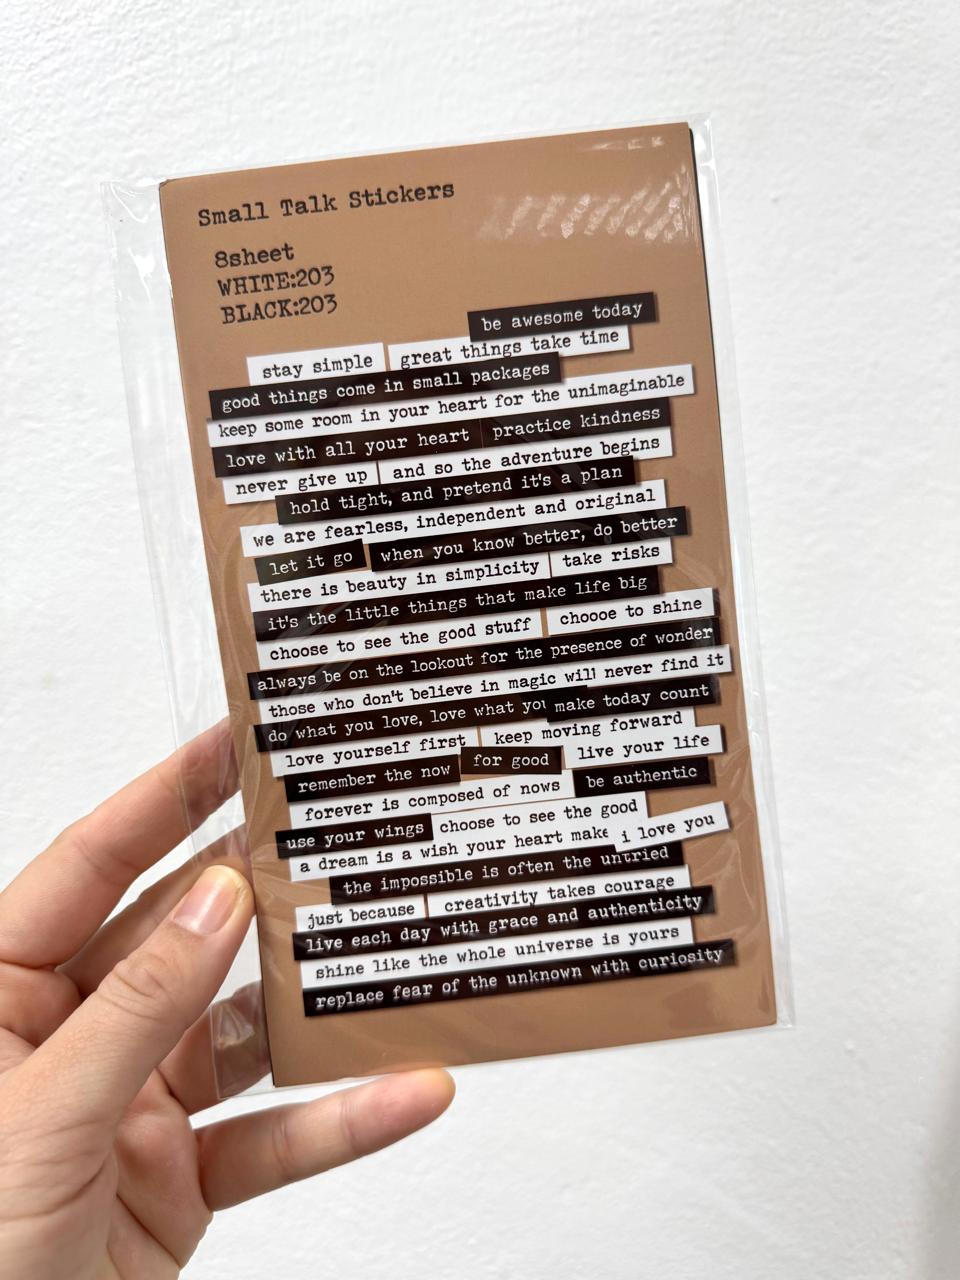 Small Talk Stickers
8sheet
WHITE:203
BLACK:203
be awesome today
stay simple great things take time
good things come in small packages
keep some room in your heart for the unimaginable
love with all your heart practice kindness
never give up and so the adventure begins
hold tight, and pretend it's a plan
we are fearless, independent and original
let it go when you know better, do better
there is beauty in simplicity take risks
it's the little things that make life big
choose to see the good stuff choooe to shine
always be on the lookout for the presence of wonder
those who don't believe in magic will never find it
do what you love, love what you make today count
love yourself first keep moving forward
remember the now for good live your life
forever is composed of nows be authentic
use your wings choose to see the good
a dream is a wish your heart make i love you
the impossible is often the untried
just because creativity takes courage
live each day with grace and authenticity
shine like the whole universe is yours
replace fear of the unknown with curiosity